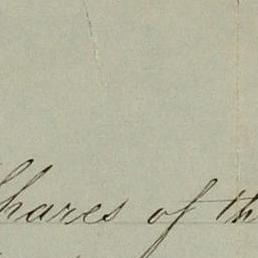 Shares of th